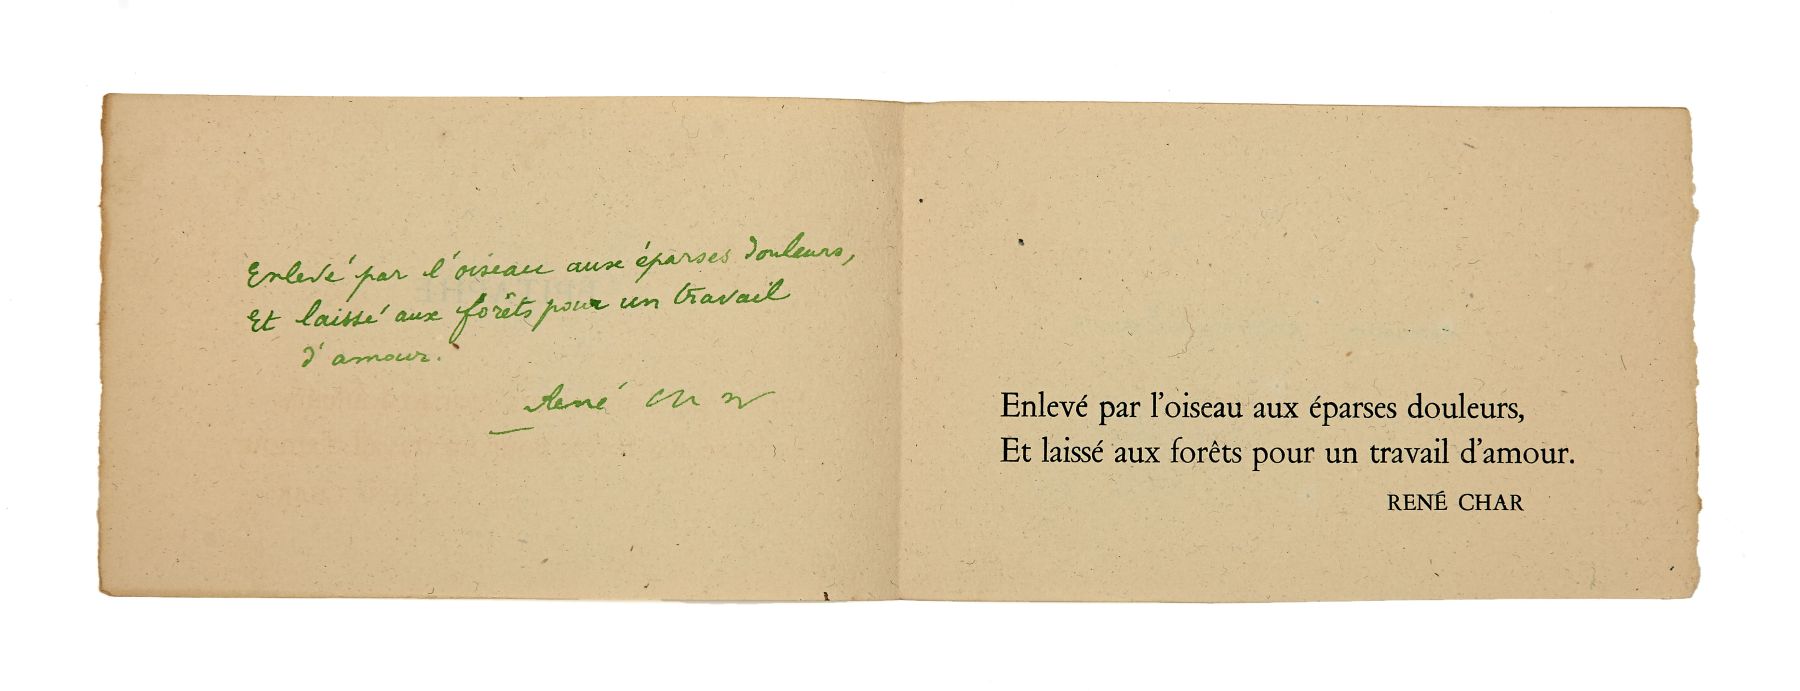 Enlevé par l'oiseau aux éparses douleurs,
Et laissé aux forêts pour un travail
d'amour.
René Char
Enlevé par l'oiseau aux éparses douleurs,
Et laissé aux forêts pour un travail d'amour.
RENÉ CHAR